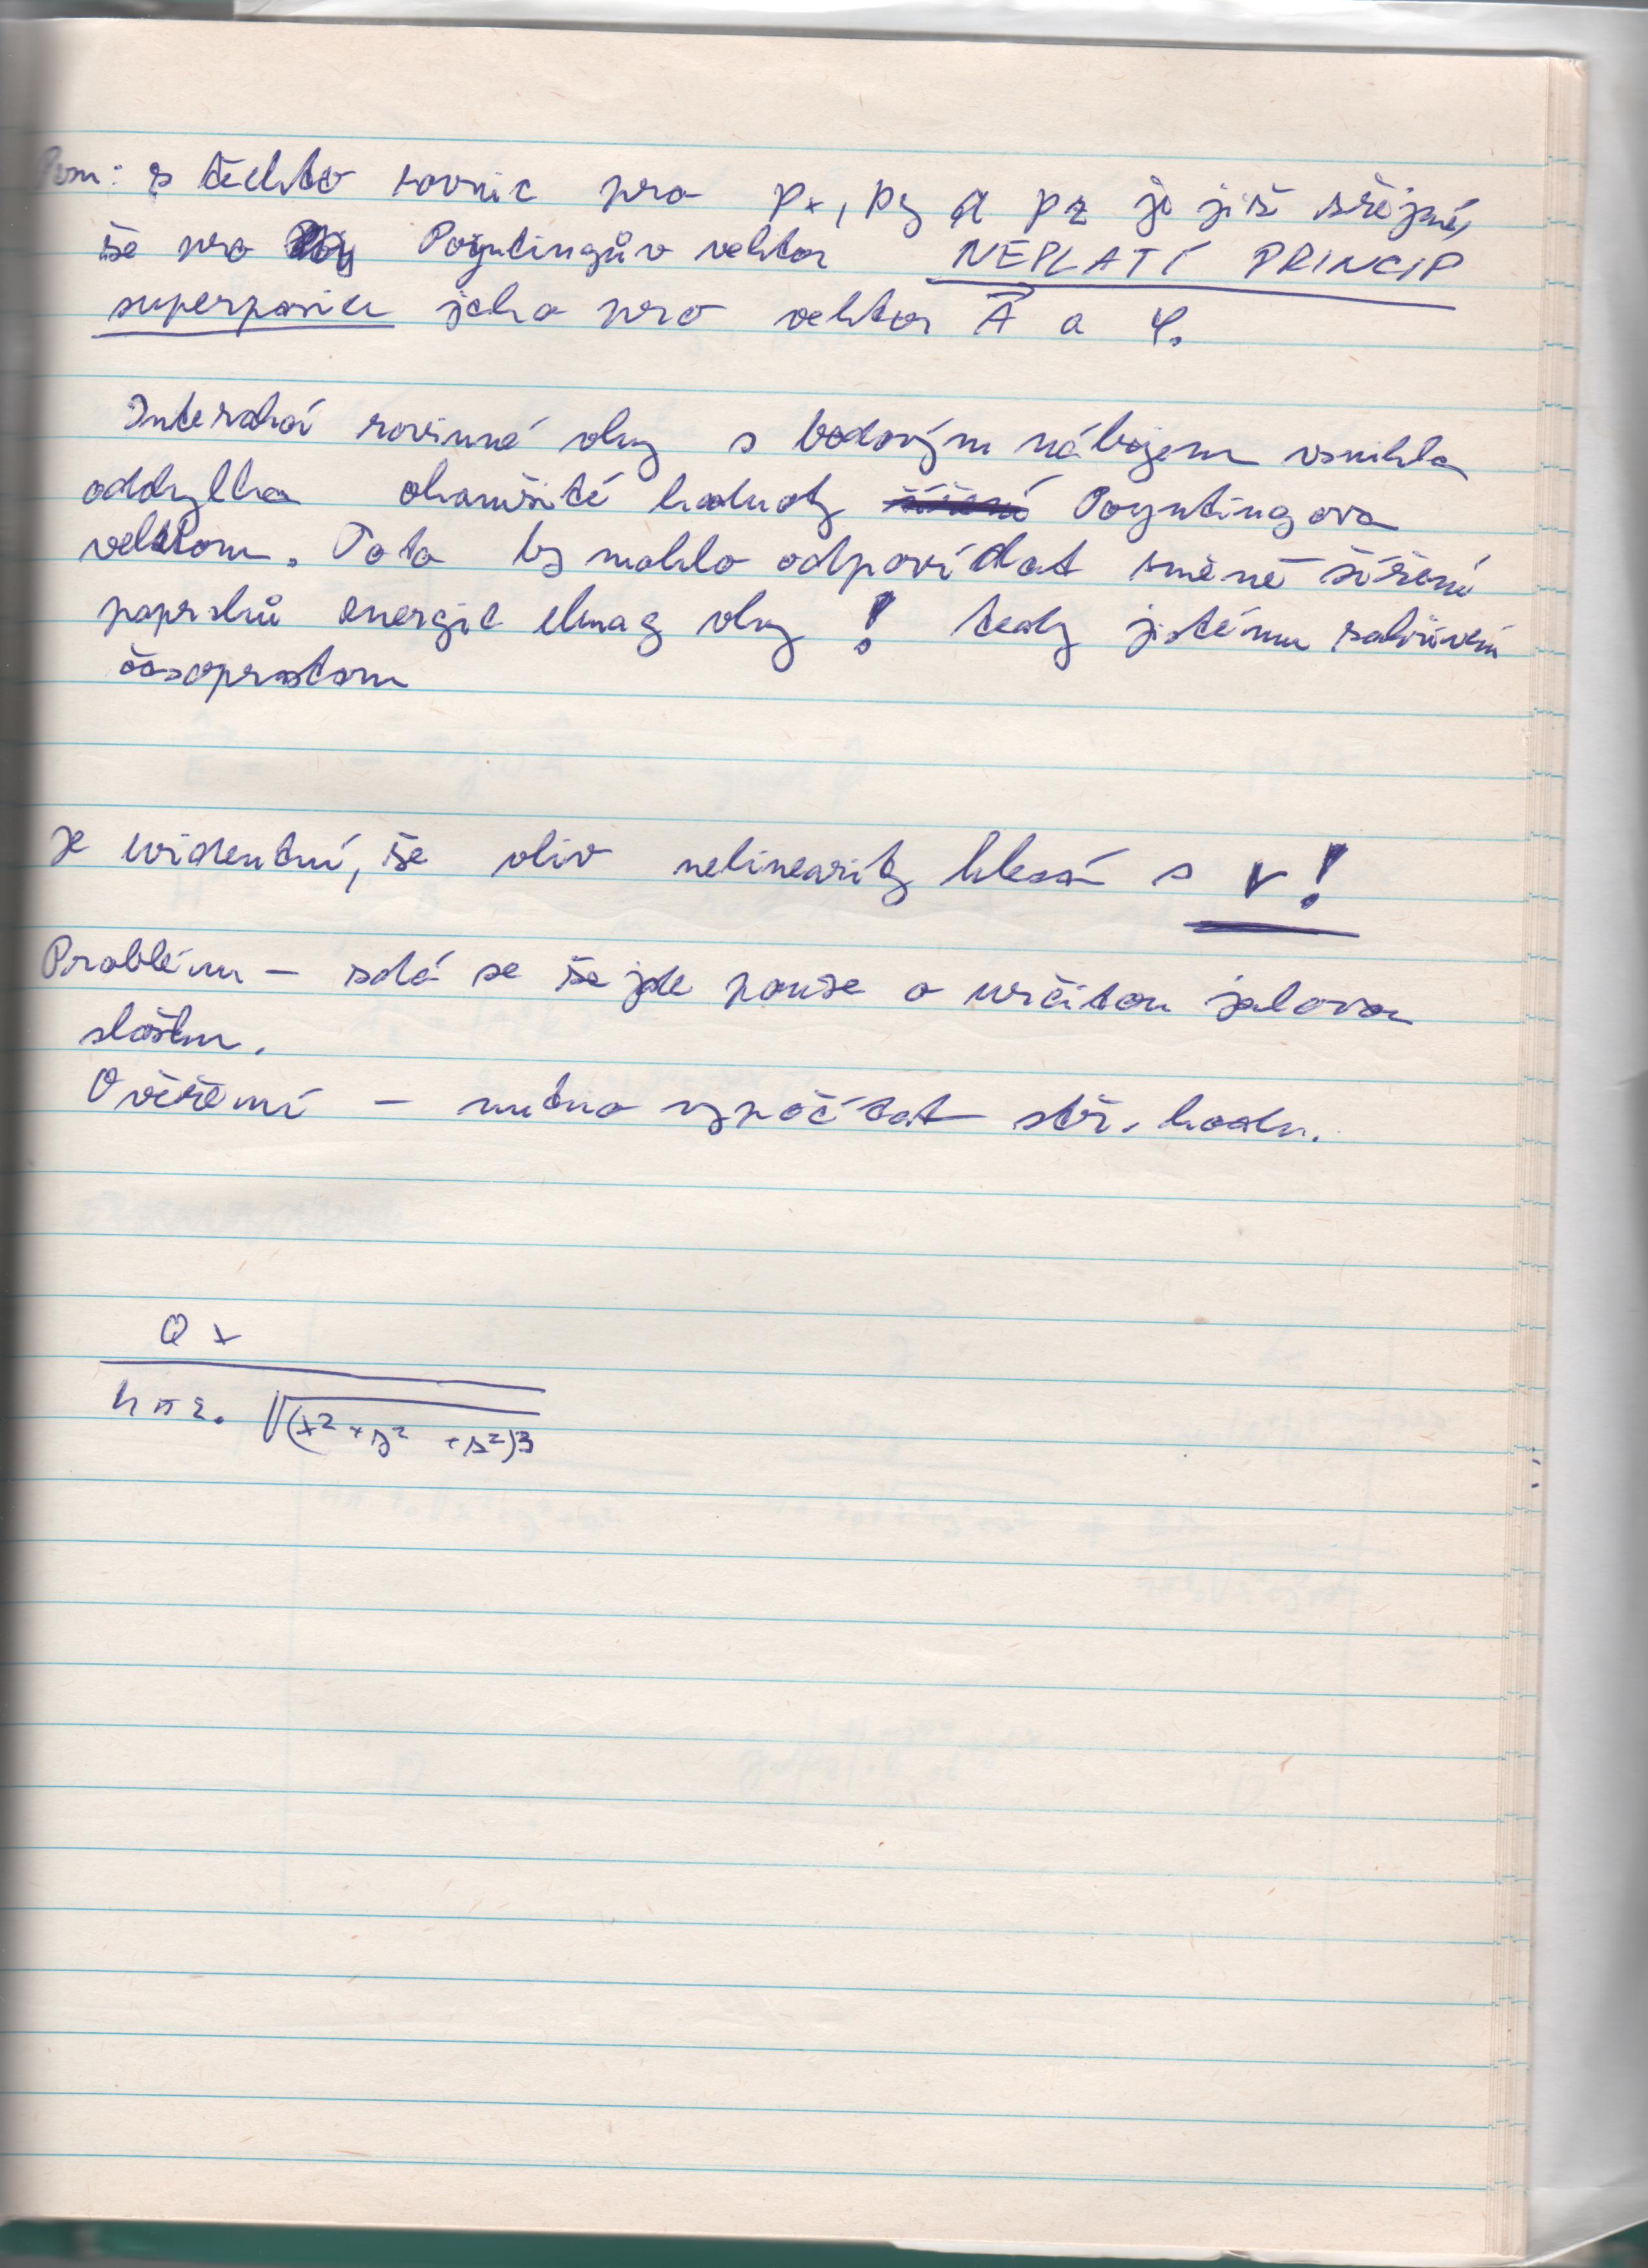 Pozn: z těchto rovnic pro px, py a pz je již zřejmé,
že pro Poyntingův vektor NEPLATÍ PRINCIP
superposice jako pro vektor A⃗ a φ.
Interakcí rovinné vlny s bodovým nábojem vznikla
odchylka okamžité hodnoty šíření Poyntingova
vektoru. Toto by mohlo odpovídat změně šíření
paprsků energie elmag vlny! tedy jistému zakřivení
časoprostoru
Je evidentní, že vliv nelinearity klesá s r!
Problém – zdá se že jde pouze o určitou jalovou
složku.
Ověření – nutno vypočítat stř. hodn.
Q x
4 π ε₀ √(x² + y² + z²)³